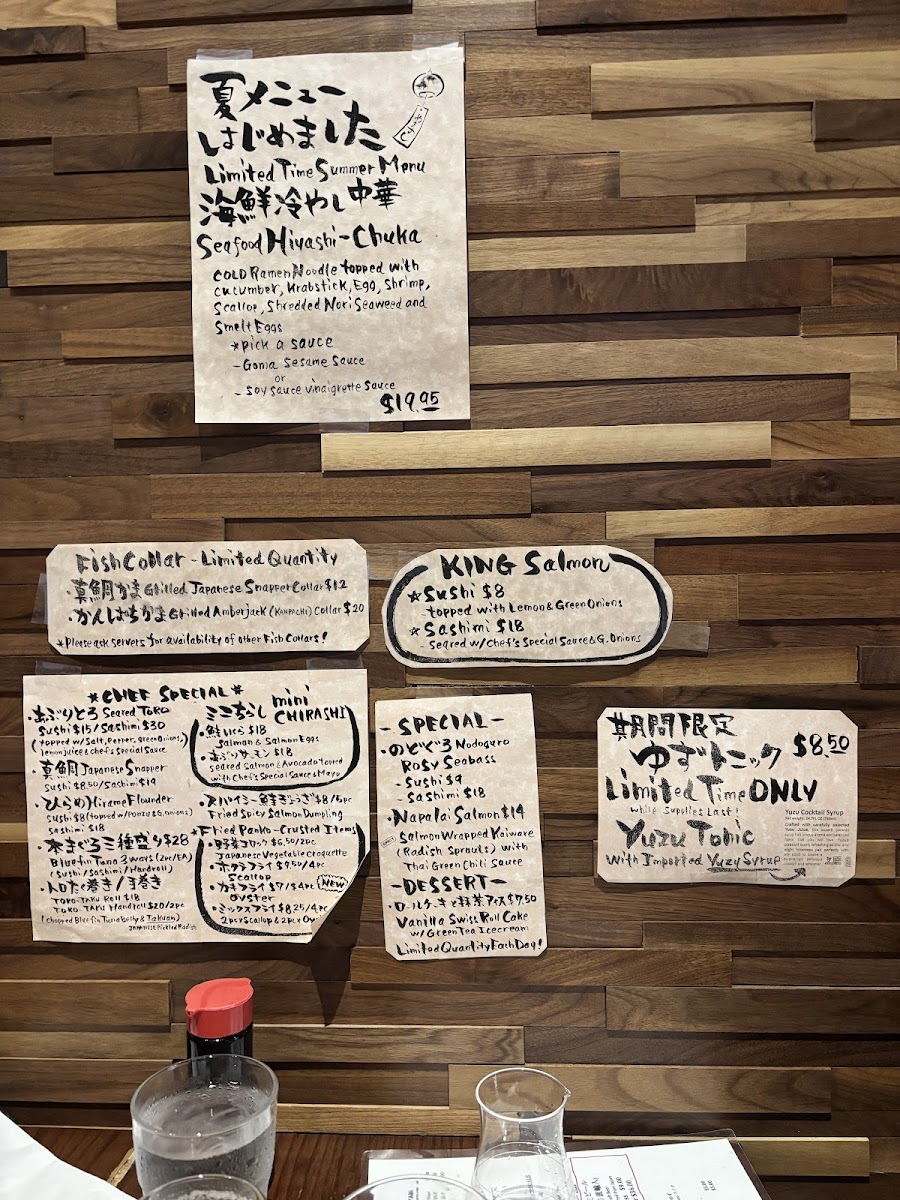 夏メニュー
はじめました
Limited Time Summer Menu
海鮮冷やし中華
Seafood Hiyashi-Chuka
COLD Ramen Noodle topped with
cucumber, Krabstick, Egg, Shrimp,
Scallop, Shredded Nori Seaweed and
Smelt Eggs
*pick a sauce
- Goma sesame sauce
or
- Soy sauce vinaigrette sauce
$19.95
Fish Collar - Limited Quantity
・真鯛かま Grilled Japanese Snapper Collar $12
・かんぱちかま Grilled Amberjack (KANPACHI) Collar $20
*Please ask servers for availability of other Fish Collars!
KING Salmon
☆Sushi $8
topped with Lemon & Green Onions
☆Sashimi $18
- Seared w/Chef's Special Sauce & G.Onions
*CHEF SPECIAL*
・あぶりとろ Seared TORO
Sushi $15/Sashimi $30
(topped w/ Salt, Pepper, Green Onions,
Lemon juice & Chef's Special Sauce
・真鯛 Japanese Snapper
Sushi $8.50/Sashimi $19
・ひらめ Hirame Flounder
Sushi $8 (topped w/Ponzu & G.onions)
Sashimi $18
・本まぐろ三種盛り $28
Bluefin Tuna 3 ways (2pc/EA)
(Sushi/Sashimi/Handroll)
・トロたく巻き/手巻き
TORO-TAKU Roll $18
TORO-TAKU Handroll $20/2pc
(Chopped Bluefin Tuna belly & Takuan)
JAPANESE Pickled Radish
ミニちらし mini
CHIRASHI
・鮭いくら $18
Salmon & Salmon Eggs
・あぶりサーモン $18
Seared Salmon & Avocado topped
with Chef's Special Sauce & Mayo
・スパイシー鮭ぎょうざ $8/6pc
Fried Spicy Salmon Dumpling
*Fried Panko-Crusted Items
・野菜コロッケ $6.50/4pc
Japanese Vegetable Croquette
・ホタテフライ $9.50/4pc
Scallop
・カキフライ $7/4pc NEW
Oyster
・ミックスフライ $8.25/4pc
2pc Scallop & 2pc Oys
- SPECIAL -
・のどぐろ Nodoguro
Rosy Seabass
- Sushi $9
- Sashimi $18
・Napalai Salmon $14
Salmon Wrapped Kaiware
(Radish Sprouts) with
Thai Green Chili Sauce
- DESSERT -
・ロールケーキと抹茶アイス $7.50
Vanilla Swiss Roll Cake
w/ Green Tea Icecream
Limited Quantity Each Day!
期間限定
ゆずトニック $8.50
Limited Time ONLY
while Supplies Last!
Yuzu Tonic
with Imported Yuzu Syrup
Yuzu Cocktail Syrup